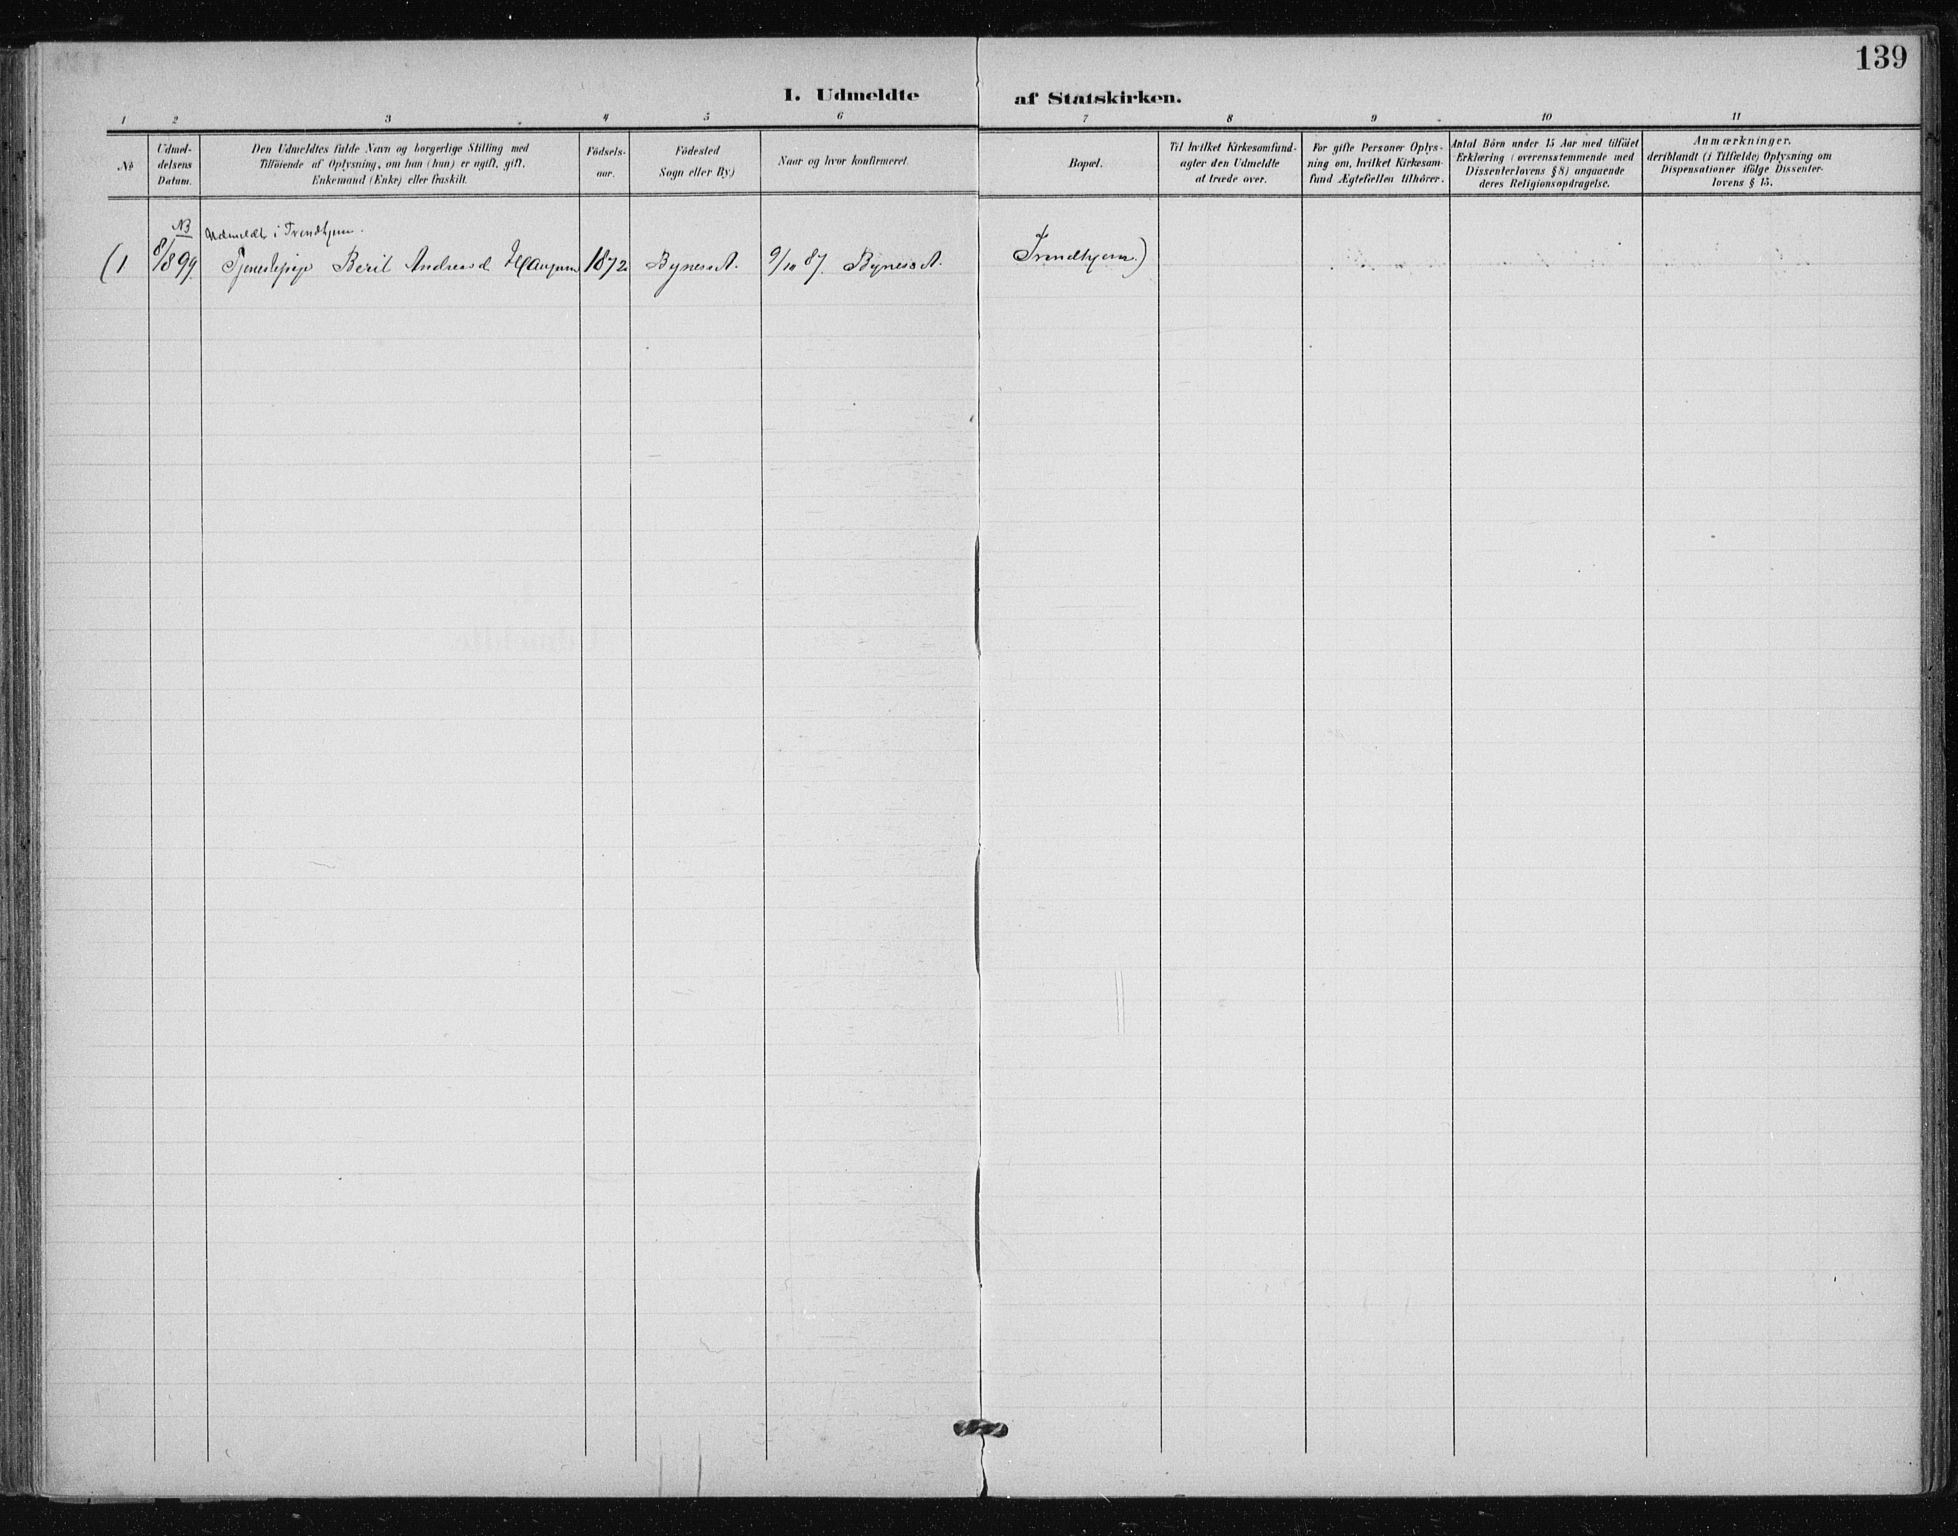 139
I. Udmeldte af Statskirken.
1 2 3 4 5 6 7 8 9 10 11
№
Udmel-
delsens
Datum.
Den Udmeldtes fulde Navn og borgerlige Stilling med
Tilföiende af Oplysning, om han (hun) er ugift, gift,
Enkemand (Enke) eller fraskilt.
Födsels-
aar.
Födested
Sogn eller By)
Naar og hvor konfirmeret.
Bopæl.
Til hvilket Kirkesamfund-
agter den Udmeldte
at træde over.
For gifte Personer Oplys-
ning om, hvilket Kirkesam-
fund Ægtefællen tilhörer.
Antal Börn under 15 Aar med tilföiet
Erklæring (overensstemmende med
Dissenterlovens § 8) angaaende
deres Religionsopdragelse.
Anmærkninger.
deriblandt (i Tilfælde) Oplysning om
Dispensationer ifölge Dissenter-
lovens § 15.
NB Udmeldt i Trondhjem.
(1 8/8 99. Tjenestepige Beril Andreasd 1872 Bynesset. 9/10 87 Bynesset. Trondhjem.)